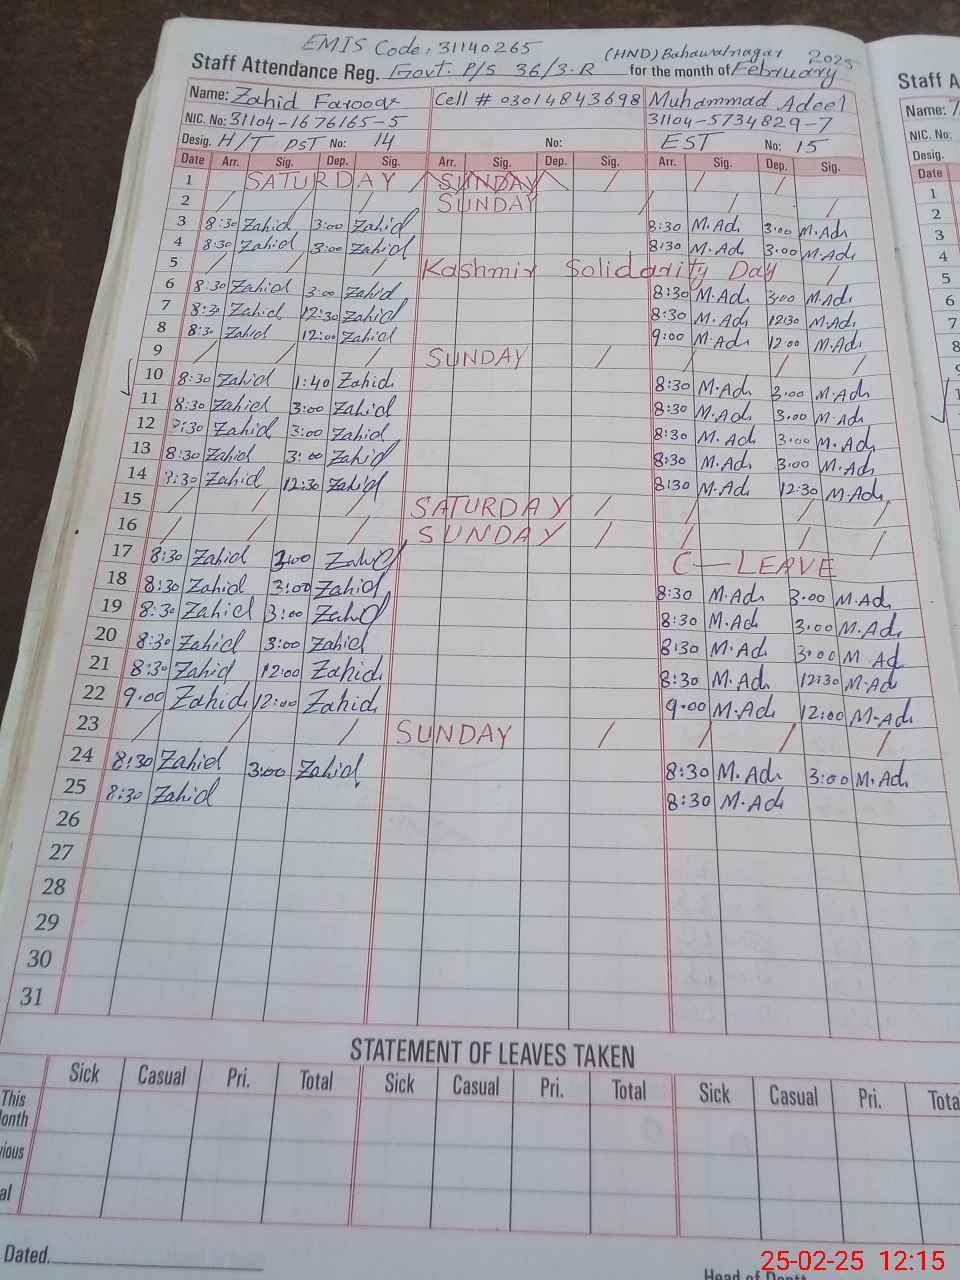 EMIS Code, 31140265 (HND) Bahawalnagar 2025
Staff Attendance Reg. Govt. P/S 36/3-R for the month of February
Name: Zahid Farooq Cell # 03014843698 Muhammad Adeel
NIC. No: 31104-1676165-5 31104-5734829-7
Desig. H/T PST No: 14 No: EST No: 15
Date Arr. Sig. Dep. Sig. Arr. Sig. Dep. Sig. Arr. Sig. Dep. Sig.
1 SATURDAY SUNDAY
2 SUNDAY
3 8:30 Zahid 3:00 Zahid 8:30 M.Ad 3:00 M.Ad
4 8:30 Zahid 3:00 Zahid 8:30 M.Ad 3:00 M.Ad
5 Kashmir Solidarity Day
6 8:30 Zahid 3:00 Zahid 8:30 M.Ad 3:00 M.Ad
7 8:30 Zahid 12:30 Zahid 8:30 M.Ad 12:30 M.Ad
8 8:30 Zahid 12:00 Zahid 9:00 M.Ad 12:00 M.Ad
9 SUNDAY
10 8:30 Zahid 1:40 Zahid 8:30 M.Ad 3:00 M.Ad
11 8:30 Zahid 3:00 Zahid 8:30 M.Ad 3:00 M.Ad
12 Zahid 3:00 Zahid 8:30 M.Ad 3:00 M.Ad
13 8:30 Zahid 3:00 Zahid 8:30 M.Ad 3:00 M.Ad
14 Zahid 12:30 Zahid 8:30 M.Ad 12:30 M.Ad
15 SATURDAY
16 SUNDAY
17 8:30 Zahid 3:00 Zahid C-LEAVE
18 8:30 Zahid 3:00 Zahid 8:30 M.Ad 3:00 M.Ad
19 8:30 Zahid 3:00 Zahid 8:30 M.Ad 3:00 M.Ad
20 8:30 Zahid 3:00 Zahid 8:30 M.Ad 3:00 M.Ad
21 8:30 Zahid 12:00 Zahid 8:30 M.Ad 12:30 M.Ad
22 9:00 Zahid 12:00 Zahid 9:00 M.Ad 12:00 M.Ad
23 SUNDAY
24 8:30 Zahid 3:00 Zahid 8:30 M.Ad 3:00 M.Ad
25 8:30 Zahid 8:30 M.Ad
26
27
28
29
30
31
STATEMENT OF LEAVES TAKEN
Sick Casual Pri. Total Sick Casual Pri. Total Sick Casual Pri. Tota
This
onth
ious
al
Dated.
Head of Deptt
Staff A
Name:
NIC. No:
Desig.
Date
1
2
3
4
5
6
7
8
25-02-25 12:15